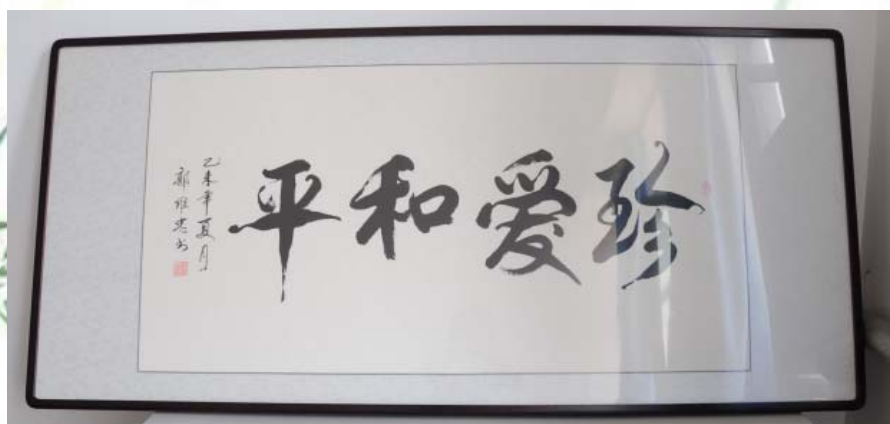 珍爱和平
乙未年夏月
郭维忠书